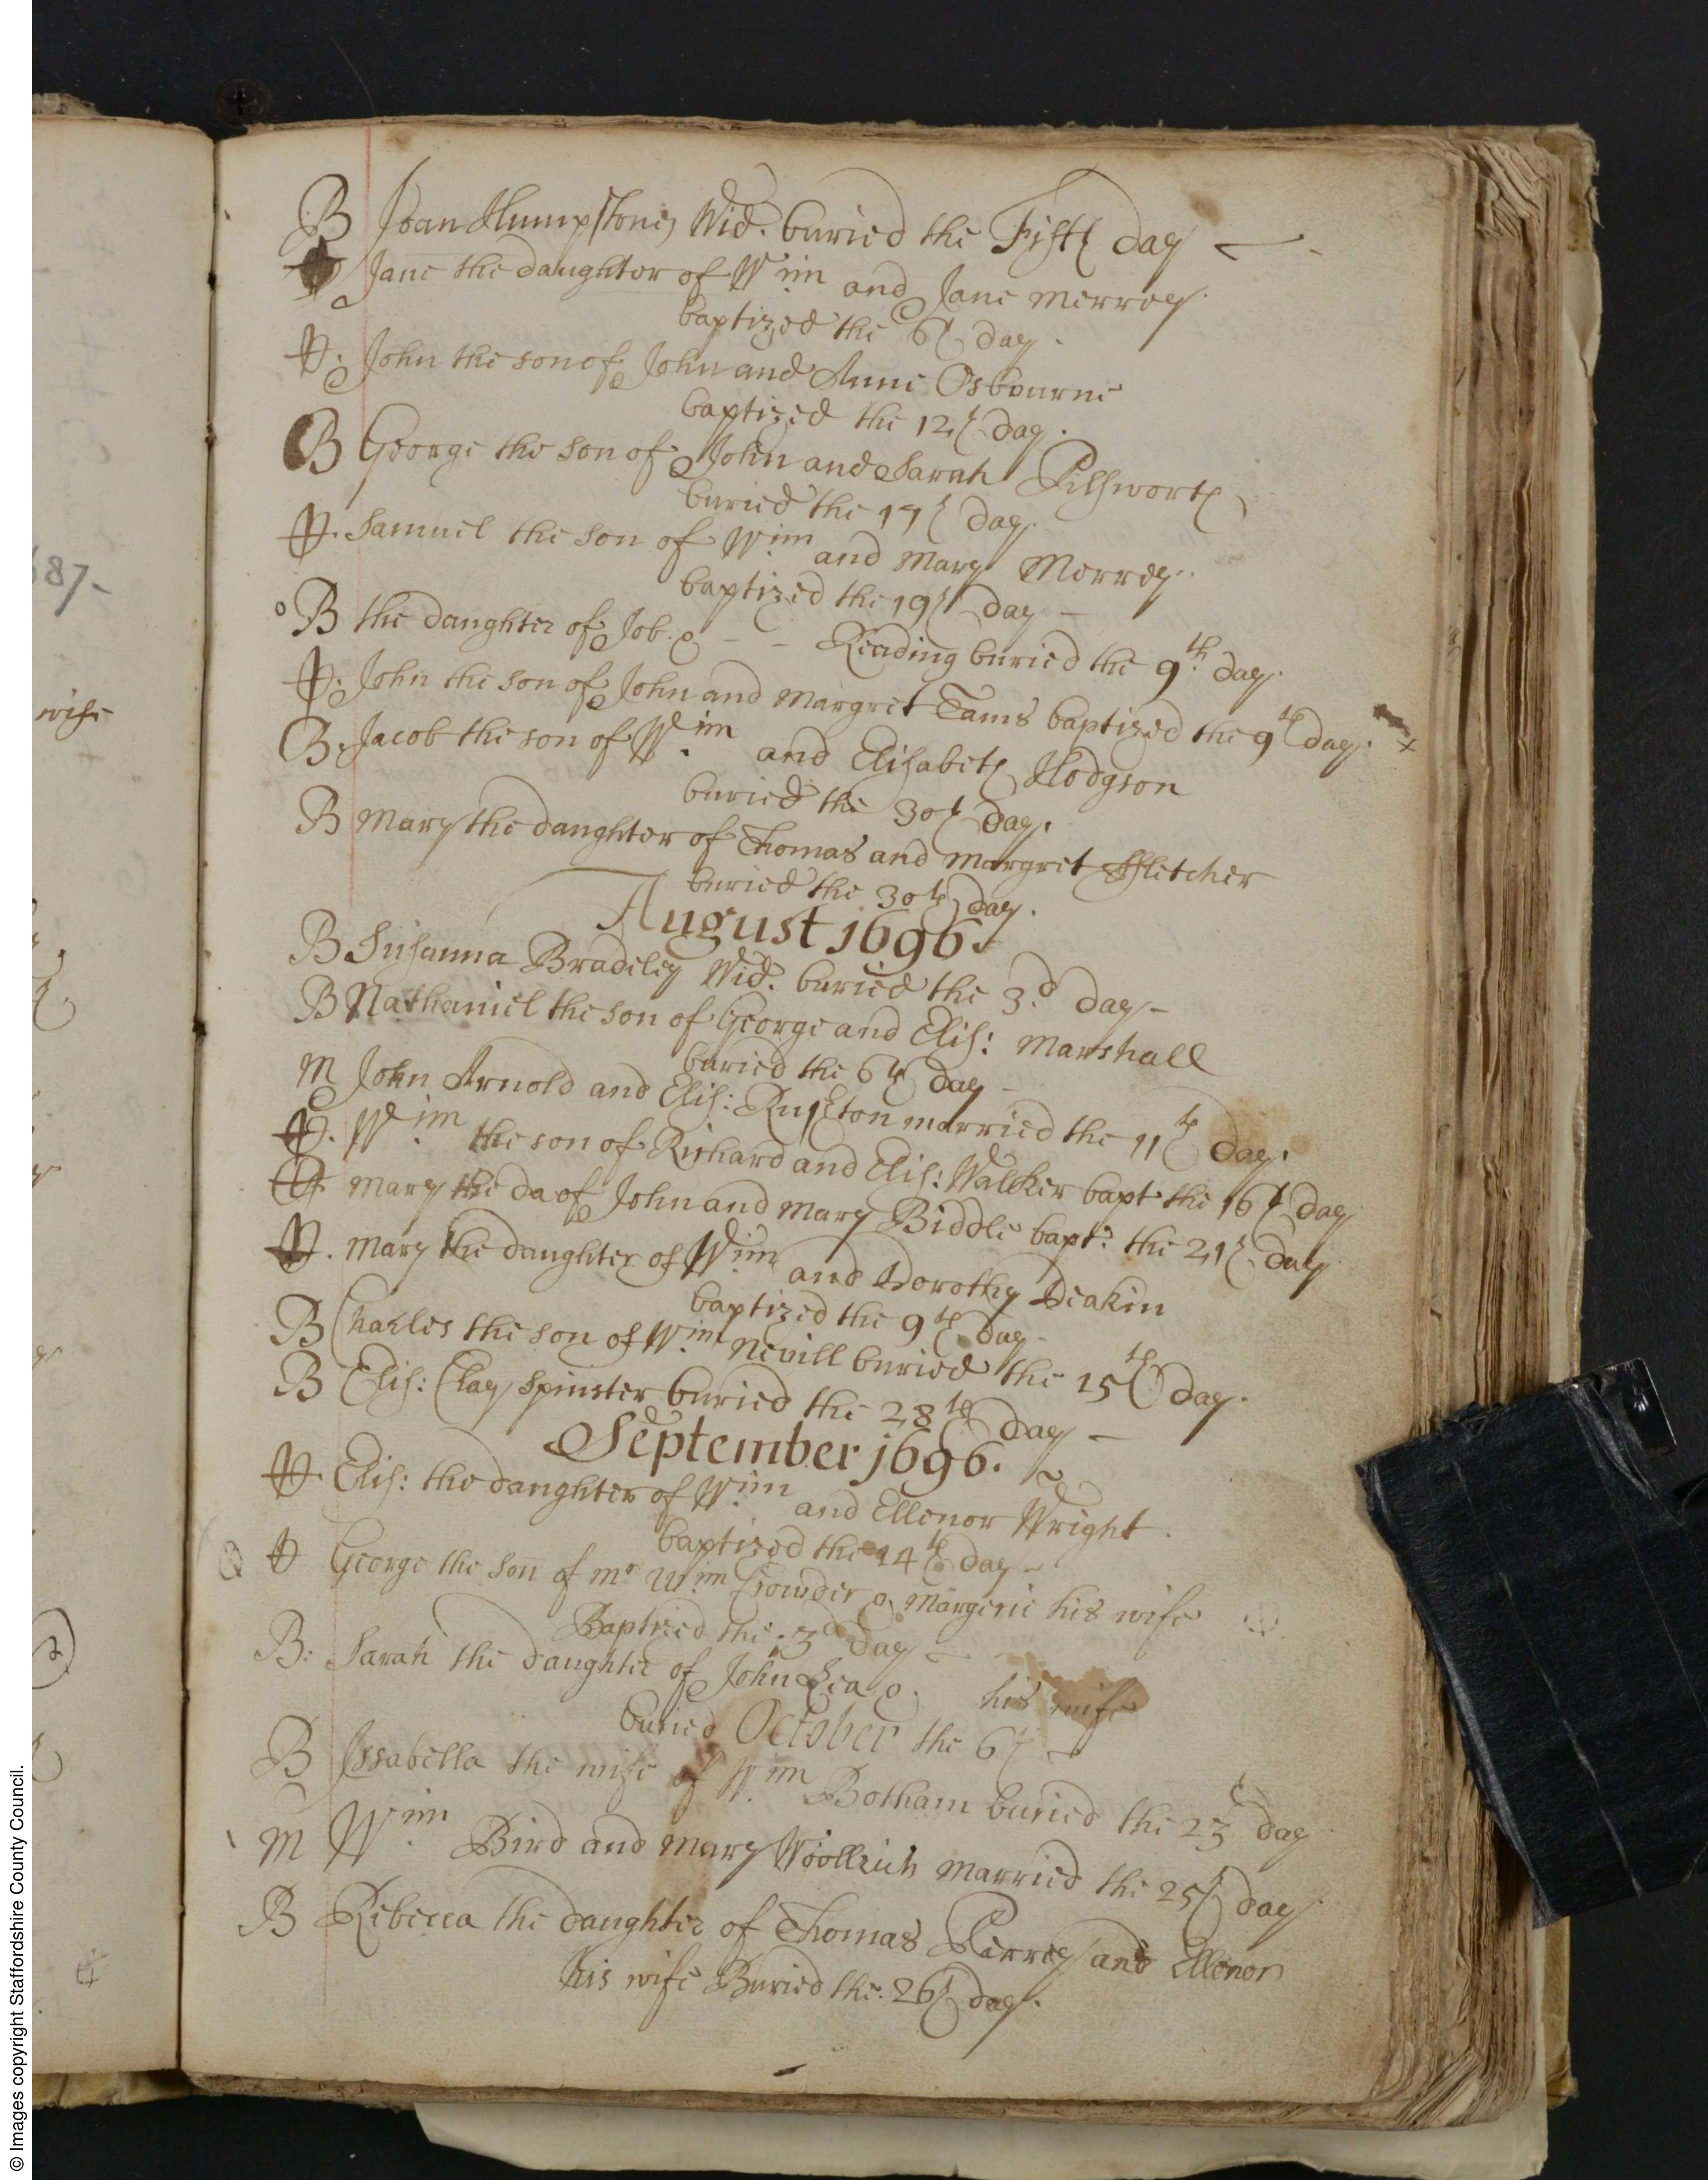 B Joan Humpstone Wid: buried the Fifth day
Jane the daughter of Wim and Jane Merrey
baptized the 6th day.
John the son of John and Anne Osbourne
baptized the 12th day.
B George the son of John and Sarah Pilsworth
buried the 17th day.
Samuel the son of Wim and Mary Merrey
baptized the 19th day
B the daughter of Job. Reading buried the 9th day.
John the son of John and Margret Tams baptized the 9th day. x
B. Jacob the son of Wim and Elisabeth Hodgson
buried the 30th day.
B Mary the daughter of Thomas and Margret Ffletcher
buried the 30th day.
August 1696.
B Susanna Bradeley Wid: buried the 3d day
B Nathaniel the son of George and Elis: Marshall
buried the 6th day
M John Arnold and Elis: Rushton married the 11th day.
Wim the son of Richard and Elis: Walcker bapt: the 16th day
Mary the da of John and Mary Biddle bapt: the 21th day
Mary the daughter of Wim and Dorothy Deakin
baptized the 9th day
B Charles the son of Wim Nevill buried the 15th day.
B Elis: Clay spinster buried the 28th day
September 1696.
Elis: the daughter of Wim and Ellenor Wright.
baptized the 14th day
George the son of mr Wim Crowder & Margerie his wife
Baptized the 3d day
B: Sarah the daughter of John Lea & his wife
buried October the 6th
B Issabella the wife of Wim Botham buried the 23d day
M Wim Bird and Mary Woollrich married the 25th day
B Rebecca the daughter of Thomas Perrey and Ellenor
his wife Buried the 26th day.
87-
wife
2
© Images copyright Staffordshire County Council.